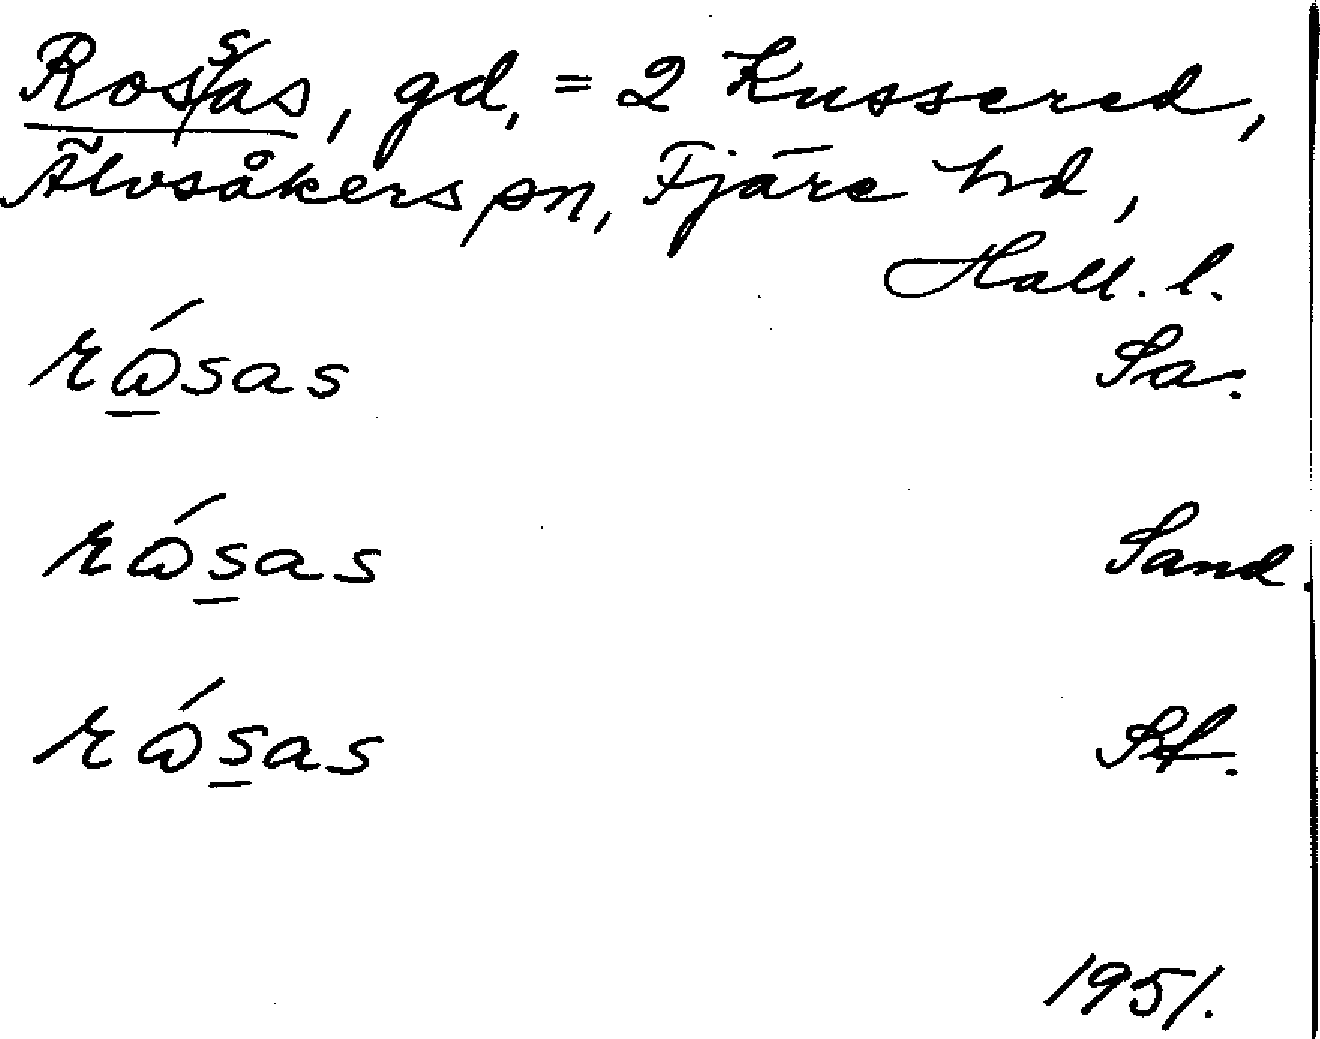 Rossas, gd, = 2 Kussered,
Älvsåkers sn, Fjäre hd,
Hall. l.
rɷ́sas Sa.
rɷ́sas Sand.
rɷ́sas
1951.